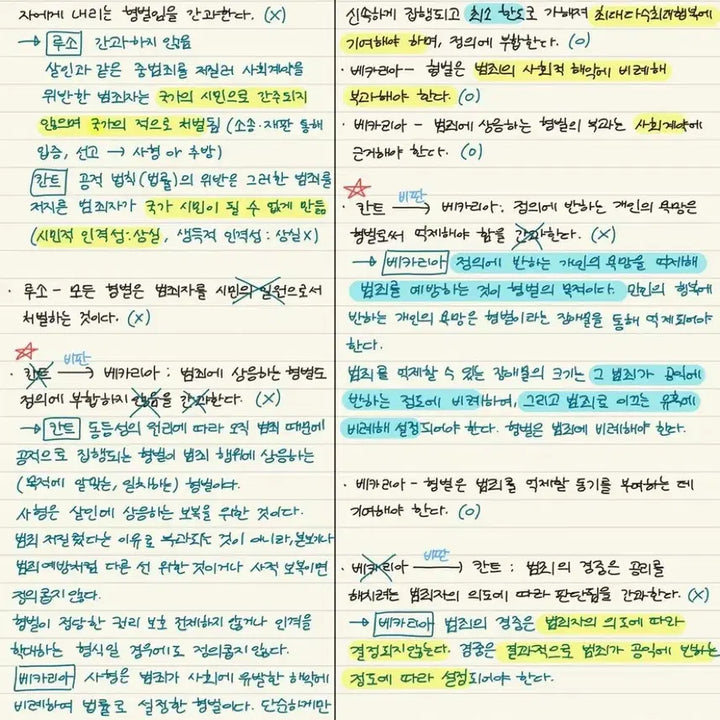 자에게 내리는 형벌임을 간과한다. (X)
→ 루소 간과하지 않음
살인과 같은 중범죄를 저질러 사회계약을
위반한 범죄자는 국가의 시민으로 간주되지
않으며 국가의 적으로 처벌됨 (소송·재판 통해
입증, 선고 → 사형 or 추방)
칸트 공적 법칙(법률)의 위반은 그러한 범죄를
저지른 범죄자가 국가 시민이 될 수 없게 만듦
(시민적 인격성:상실, 생득적 인격성 : 상실X)
· 루소 - 모든 형벌은 범죄자를 시민의 일원으로서
처벌하는 것이다. (X)
☆ 비판
· 칸트 → 베카리아 : 범죄에 상응하는 형벌도
정의에 부합하지 않음을 간과한다. (X)
→ 칸트 동등성의 원리에 따라 오직 범죄 때문에
공적으로 집행되는 형벌이 범죄 행위에 상응하는
(목적에 알맞는, 일치하는) 형벌이다.
사형은 살인에 상응하는 보복을 위한 것이다.
범죄 저질렀다는 이유로 부과되는 것이 아니라, 본보기나
범죄예방처럼 다른 선 위한 것이거나 사적 보복이면
정의롭지 않다.
형벌이 정당한 권리 보호 전제하지 않거나 인격을
학대하는 형식일 경우에도 정의롭지 않다.
베카리아 사형은 범죄가 사회에 유발한 해악에
비례하여 법률로 설정한 형벌이다. 단순하게만
신속하게 집행되고 최소 한도로 가해져 최대다수최대행복에
기여해야 하며, 정의에 부합한다. (O)
· 베카리아 - 형벌은 범죄의 사회적 해악에 비례해
부과해야 한다. (O)
· 베카리아 - 범죄에 상응하는 형벌의 부과는 사회계약에
근거해야 한다. (O)
☆ 비판
· 칸트 → 베카리아 : 정의에 반하는 개인의 욕망은
형벌로써 억제해야 함을 간과한다. (X)
→ 베카리아 정의에 반하는 개인의 욕망을 억제해
범죄를 예방하는 것이 형벌의 목적이다. 만인의 행복에
반하는 개인의 욕망은 형벌이라는 장애물을 통해 억제되어야
한다.
범죄를 억제할 수 있는 장애물의 크기는 그 범죄가 공익에
반하는 정도에 비례하여, 그리고 범죄로 이끄는 유혹에
비례해 설정되어야 한다. 형벌은 범죄에 비례해야 한다.
· 베카리아 - 형벌은 범죄를 억제할 동기를 부여하는 데
기여해야 한다. (O)
비판
· 베카리아 → 칸트 : 범죄의 경중은 공리를
해치려는 범죄자의 의도에 따라 판단됨을 간과한다. (X)
→ 베카리아 범죄의 경중은 범죄자의 의도에 따라
결정되지않는다. 경중은 결과적으로 범죄가 공익에 반하는
정도에 따라 설정되어야 한다.